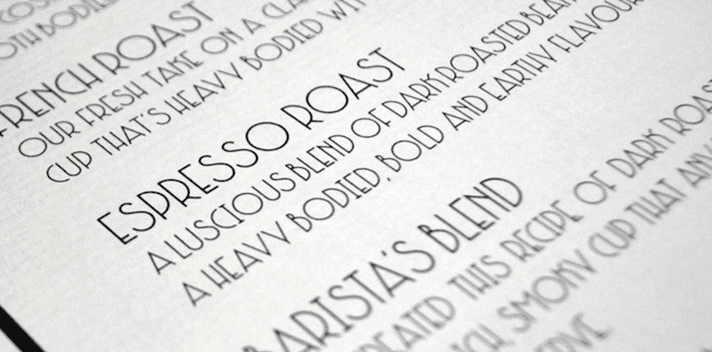 OTH BODIED
FRENCH ROAST
OUR FRESH TAKE ON A CLA
CUP THAT'S HEAVY BODIED WIT
ESPRESSO ROAST
A LUSCIOUS BLEND OF DARK ROASTED BEAN
A HEAVY BODIED, BOLD AND EARTHY FLAVOUR
BARISTA'S BLEND
EATED THIS RECIPE OF DARK ROAST
CH, SMOKY CUP THAT ANY